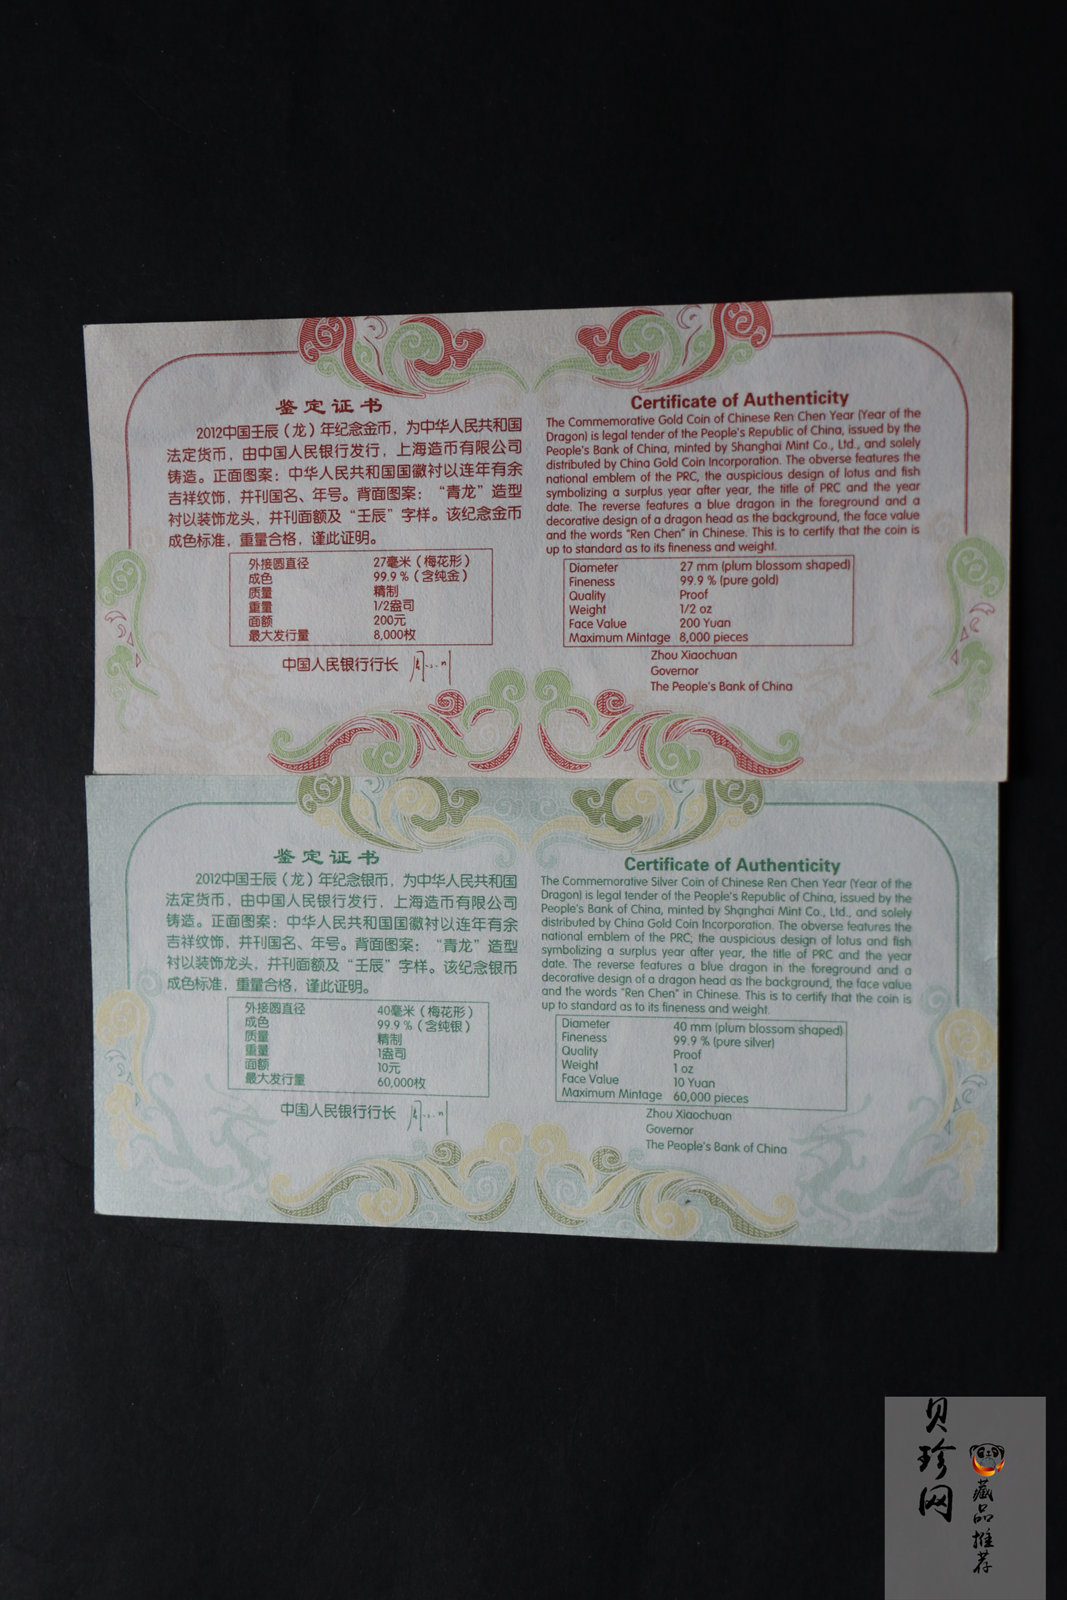 鉴定证书
2012中国壬辰（龙）年纪念金币，为中华人民共和国
法定货币，由中国人民银行发行，上海造币有限公司
铸造。正面图案：中华人民共和国国徽衬以连年有余
吉祥纹饰，并刊国名、年号。背面图案：“青龙”造型
衬以装饰龙头，并刊面额及“壬辰”字样。该纪念金币
成色标准，重量合格，谨此证明。
外接圆直径 27毫米（梅花形）
成色 99.9％（含纯金）
质量 精制
重量 1/2盎司
面额 200元
最大发行量 8,000枚
中国人民银行行长
Certificate of Authenticity
The Commemorative Gold Coin of Chinese Ren Chen Year (Year of the
Dragon) is legal tender of the People's Republic of China, issued by the
People's Bank of China, minted by Shanghai Mint Co., Ltd., and solely
distributed by China Gold Coin Incorporation. The obverse features the
national emblem of the PRC, the auspicious design of lotus and fish
symbolizing a surplus year after year, the title of PRC and the year
date. The reverse features a blue dragon in the foreground and a
decorative design of a dragon head as the background, the face value
and the words "Ren Chen" in Chinese. This is to certify that the coin is
up to standard as to its fineness and weight.
Diameter 27 mm (plum blossom shaped)
Fineness 99.9 % (pure gold)
Quality Proof
Weight 1/2 oz
Face Value 200 Yuan
Maximum Mintage 8,000 pieces
Zhou Xiaochuan
Governor
The People's Bank of China
鉴定证书
2012中国壬辰（龙）年纪念银币，为中华人民共和国
法定货币，由中国人民银行发行，上海造币有限公司
铸造。正面图案：中华人民共和国国徽衬以连年有余
吉祥纹饰，并刊国名、年号。背面图案：“青龙”造型
衬以装饰龙头，并刊面额及“壬辰”字样。该纪念银币
成色标准，重量合格，谨此证明。
外接圆直径 40毫米（梅花形）
成色 99.9％（含纯银）
质量 精制
重量 1盎司
面额 10元
最大发行量 60,000枚
中国人民银行行长
Certificate of Authenticity
The Commemorative Silver Coin of Chinese Ren Chen Year (Year of the
Dragon) is legal tender of the People's Republic of China, issued by the
People's Bank of China, minted by Shanghai Mint Co., Ltd., and solely
distributed by China Gold Coin Incorporation. The obverse features the
national emblem of the PRC, the auspicious design of lotus and fish
symbolizing a surplus year after year, the title of PRC and the year
date. The reverse features a blue dragon in the foreground and a
decorative design of a dragon head as the background, the face value
and the words "Ren Chen" in Chinese. This is to certify that the coin is
up to standard as to its fineness and weight.
Diameter 40 mm (plum blossom shaped)
Fineness 99.9 % (pure silver)
Quality Proof
Weight 1 oz
Face Value 10 Yuan
Maximum Mintage 60,000 pieces
Zhou Xiaochuan
Governor
The People's Bank of China
贝珍网
藏品推荐